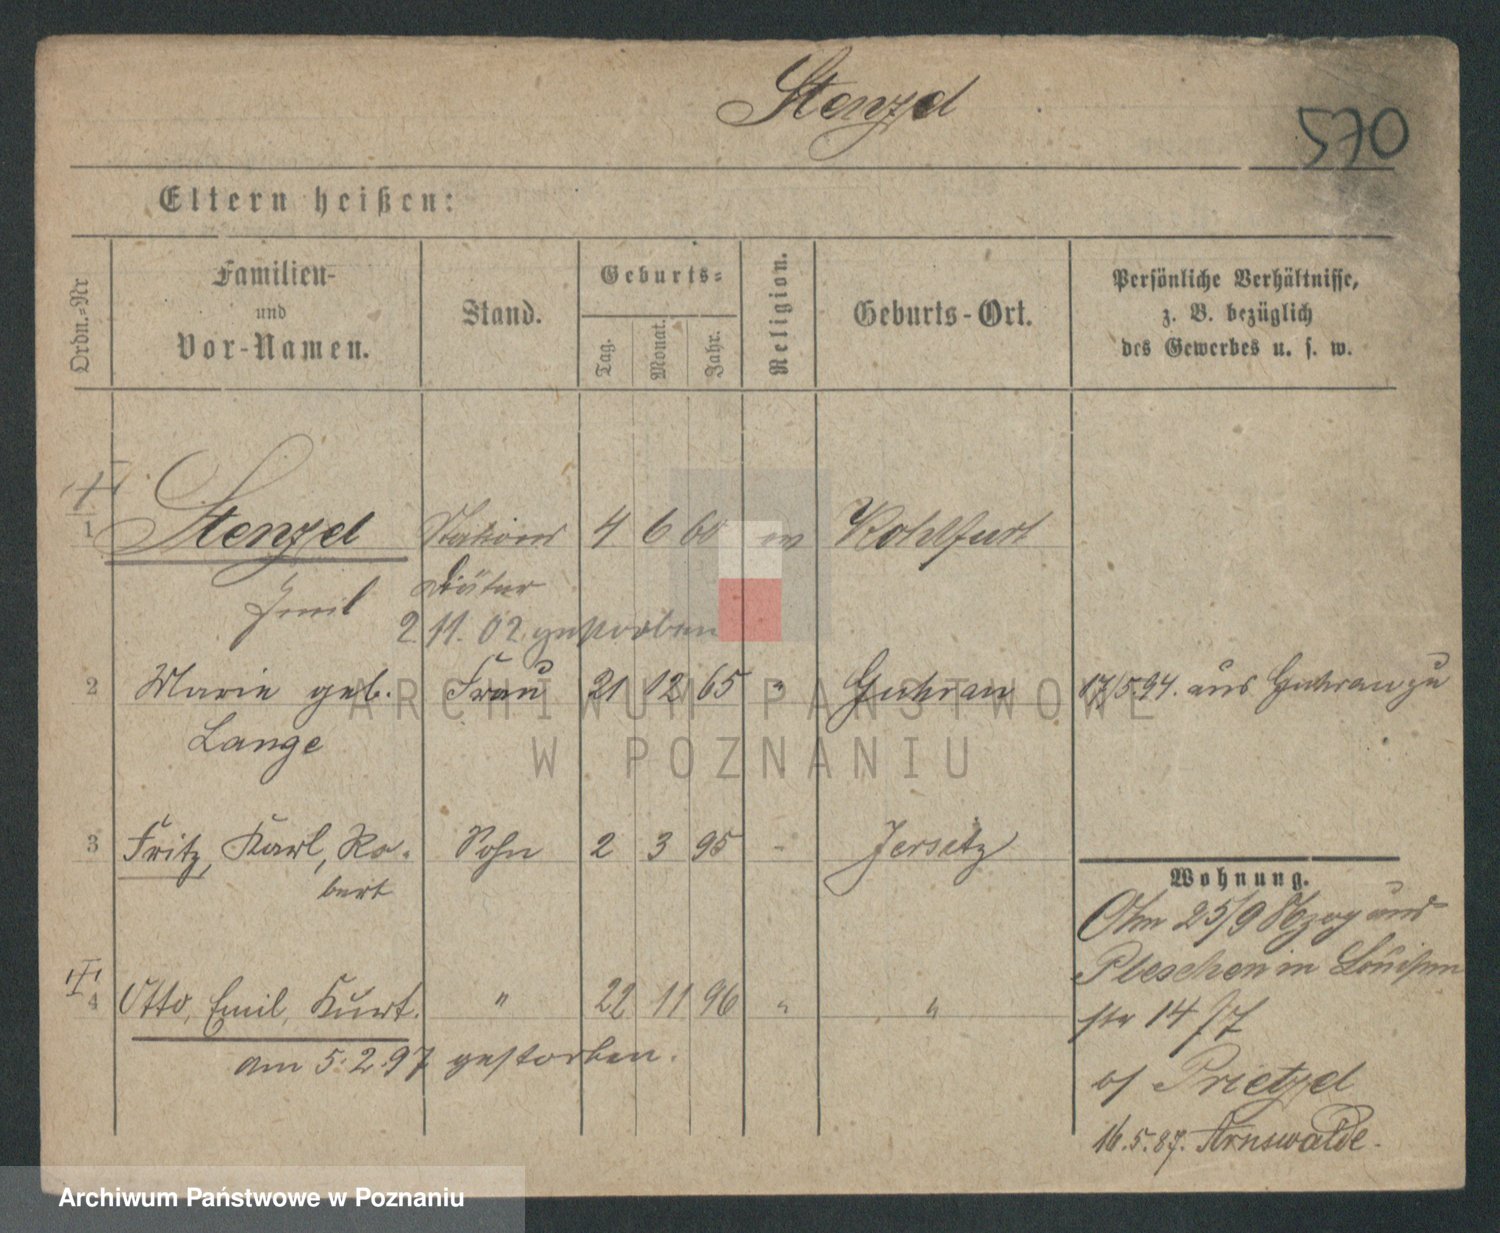 Stenzel
570
Eltern heißen:
Ordn.-Nr
Familien-
und
Vor-Namen.
Stand.
Geburts-
Tag.
Monat.
Jahr.
Religion.
Geburts-Ort.
Persönliche Verhältnisse,
z. B. bezüglich
des Gewerbes u. s. w.
1 Stenzel Stations 4 6 60 ev Kohlfurt
Emil Diätar
2. 11. 02. gestorben
2 Marie geb. Frau 21 12 65 " Guhrau 17/5.94. aus Guhrau zu
Lange
3 Fritz, Karl, Ro- Sohn 2 3 95 - Jersitz
bert
Wohnung.
25/9 Abzog aus
Pleschen in Louisen
4 Otto, Emil, Kurt. " 22 11 96 " "
str 14
am 5.2.97 gestorben.
b/ Prietzel
16.5.87. Arnswalde.
ARCHIWUM PAŃSTWOWE
W POZNANIU
Archiwum Państwowe w Poznaniu